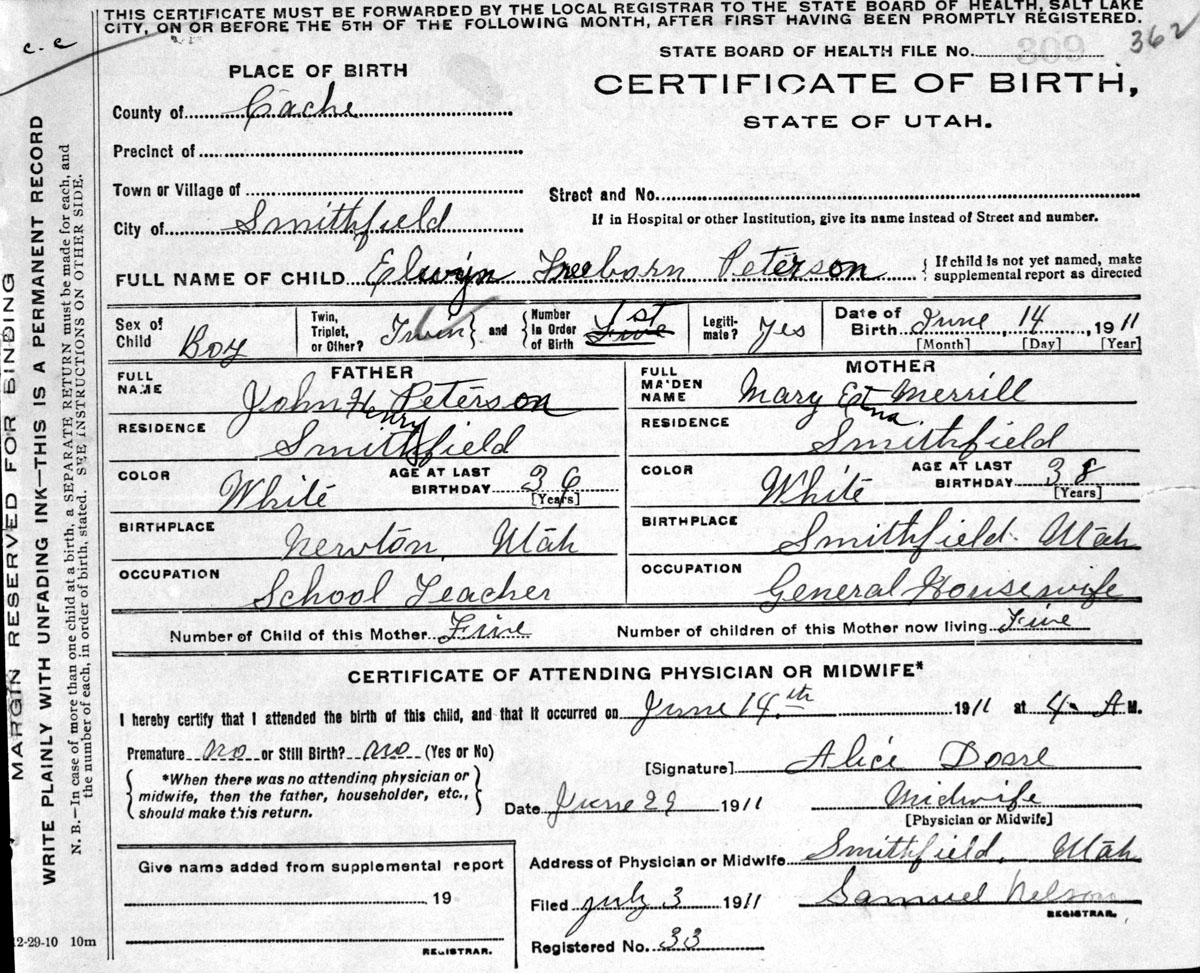 THIS CERTIFICATE MUST BE FORWARDED BY THE LOCAL REGISTRAR TO THE STATE BOARD OF HEALTH, SALT LAKE
CITY, ON OR BEFORE THE 5TH OF THE FOLLOWING MONTH, AFTER FIRST HAVING BEEN PROMPTLY REGISTERED.
c.c
362
STATE BOARD OF HEALTH FILE No.
309
PLACE OF BIRTH
CERTIFICATE OF BIRTH,
STATE OF UTAH.
County of Cache
Precinct of
Town or Village of
Street and No.
City of Smithfield
If in Hospital or other Institution, give its name instead of Street and number.
FULL NAME OF CHILD Elwyn Freeborn Peterson { If child is not yet named, make
supplemental report as directed
Sex of Child Boy
Twin, Triplet, or Other? Twin } and { Number in Order of Birth 1st Five
Legiti-mate? Yes
Date of Birth June, 14, 1911
[Month] [Day] [Year]
FATHER
FULL NAME John Henry Peterson
MOTHER
FULL MAIDEN NAME Mary Etna Merrill
RESIDENCE Smithfield
RESIDENCE Smithfield
COLOR White AGE AT LAST BIRTHDAY 36 [Years]
COLOR White AGE AT LAST BIRTHDAY 38 [Years]
BIRTHPLACE Newton, Utah
BIRTHPLACE Smithfield Utah
OCCUPATION School Teacher
OCCUPATION General Housewife
Number of Child of this Mother Five Number of children of this Mother now living Five
CERTIFICATE OF ATTENDING PHYSICIAN OR MIDWIFE*
I hereby certify that I attended the birth of this child, and that it occurred on June 14th 1911 at 4 A M.
Premature no or Still Birth? no (Yes or No)
{ *When there was no attending physician or
midwife, then the father, householder, etc.,
should make this return. }
[Signature] Alice
Date June 29 1911 Midwife
[Physician or Midwife]
Give name added from supplemental report
19
REGISTRAR.
Address of Physician or Midwife Smithfield, Utah
Filed July 3 1911 Samuel Nelson
REGISTRAR.
Registered No. 33
12-29-10 10m
MARGIN RESERVED FOR BINDING
WRITE PLAINLY WITH UNFADING INK—THIS IS A PERMANENT RECORD
N. B.—In case of more than one child at a birth, a SEPARATE RETURN must be made for each, and
the number of each, in order of birth, stated. SEE INSTRUCTIONS ON OTHER SIDE.